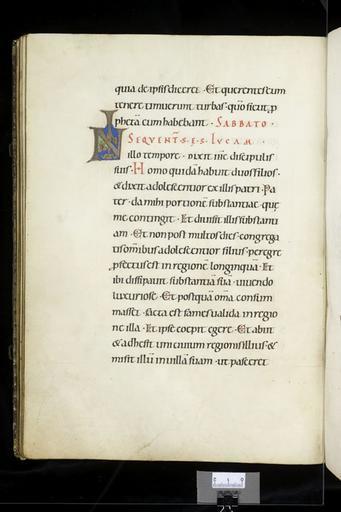 quia de ipsis diceret · Et querentes eum
tenere timuerunt turbas · qūo sicut p
phetā eum habebant · SABBATO ·
SEQVENTS · E · S · LVCAM
IN illo tempore · Dixit ihc discipulis
suis · Homo quidā habuit duos filios ·
& dixit adolescentior ex illis patri · Pa
ter · da mihi portionē substantiae · quę
me contingit · Et diuisit illis substanti
am · Et non post multos dies · congrega
tis omībus adolescentior filius · peregre
pfectus est in regionē longinquā · Et
ibi dissipauit substantiā suā · uiuendo
luxuriose · Et postquā omā consum
masset · facta est fames ualida in regio
ne illa · Et ipse coepit egere · Et abiit
& adhesit uni ciuium regionis illius · &
misit illū in uillā suam · ut pasceret